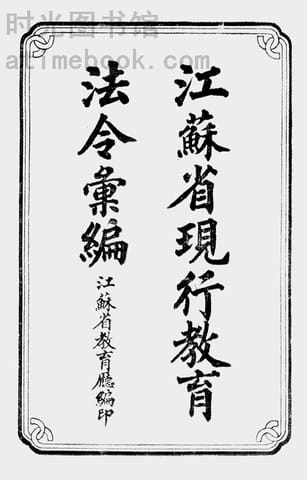 时光图书馆
atimebook.com
江蘇省現行教育
法令彙編
江蘇省教育廳編印